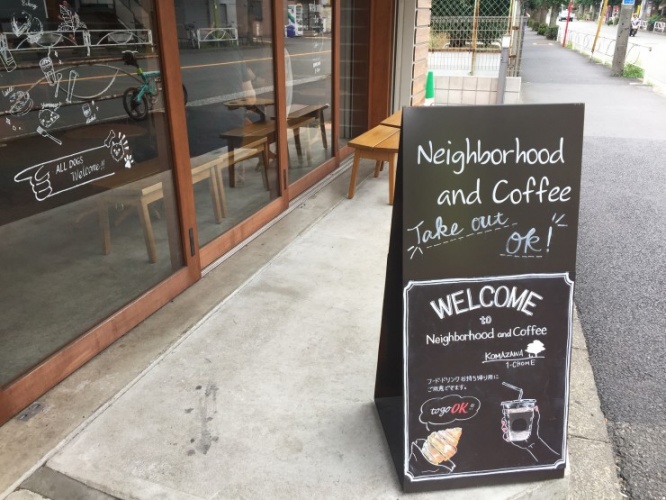 ALL DOGS
Welcome!!
Neighborhood
and Coffee
Take out
ok!
WELCOME
to
Neighborhood and Coffee
KOMAZAWA
1-CHOME
フード・ドリンクお持ち帰り用に
ご用意できます。
to go OK!!